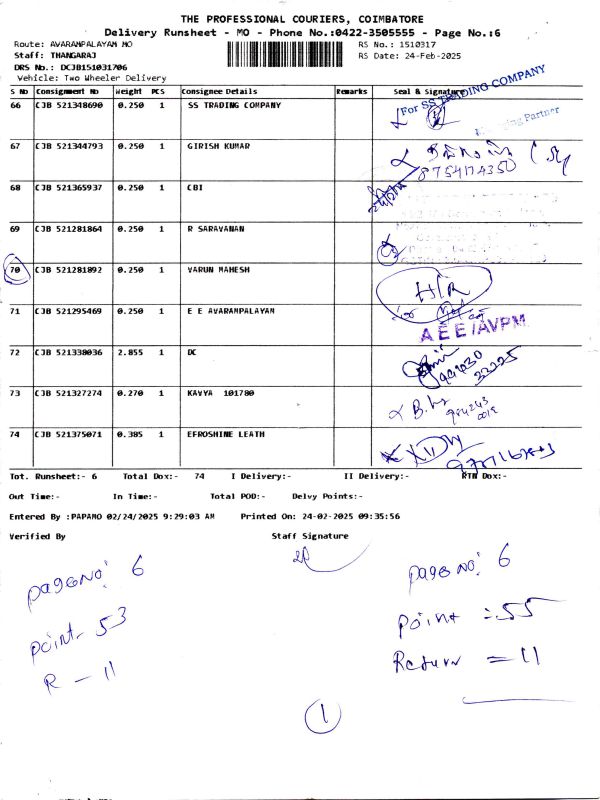 THE PROFESSIONAL COURIERS, COIMBATORE
Delivery Runsheet - MO - Phone No.:0422-3505555 - Page No.:6
Route: AVARAMPALAYAM MO
RS No.: 1510317
Staff: THANGARAJ
RS Date: 24-Feb-2025
DRS No.: DCJB151031706
Vehicle: Two Wheeler Delivery
S No Consignment No Weight PCS Consignee Details Remarks Seal & Signature
For SS TRADING COMPANY
66 CJB 521348690 0.250 1 SS TRADING COMPANY
Partner
67 CJB 521344793 0.250 1 GIRISH KUMAR
8754174350
68 CJB 521365937 0.250 1 CBI
69 CJB 521281864 0.250 1 R SARAVANAN
70 CJB 521281892 0.250 1 VARUN MAHESH
H/R
71 CJB 521295469 0.250 1 E E AVARAMPALAYAM
AEE/AVPM
72 CJB 521338036 2.855 1 DC
73 CJB 521327274 0.270 1 KAVYA 101780
74 CJB 521375071 0.385 1 EFROSHINE LEATH
Tot. Runsheet:- 6 Total Dox:- 74 I Delivery:- II Delivery:- RTN Dox:-
Out Time:- In Time:- Total POD:- Delvy Points:-
Entered By :PAPAMO 02/24/2025 9:29:03 AM Printed On: 24-02-2025 09:35:56
Verified By Staff Signature
page no: 6
point - 53
R - 11
page no: 6
point = 55
Return = 11
1